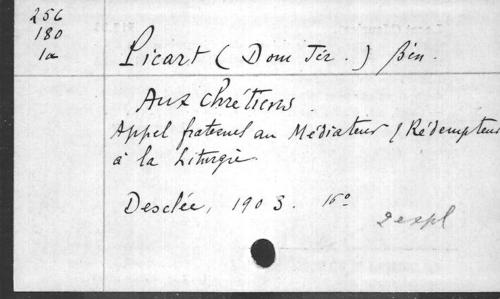 256
180
1a
Picart (Dom Tér.) Bén.
Aux Chrétiens.
Appel fraternel au Médiateur / Rédempteur
à la Liturgie.
Desclée, 1903. 16º
2 expl